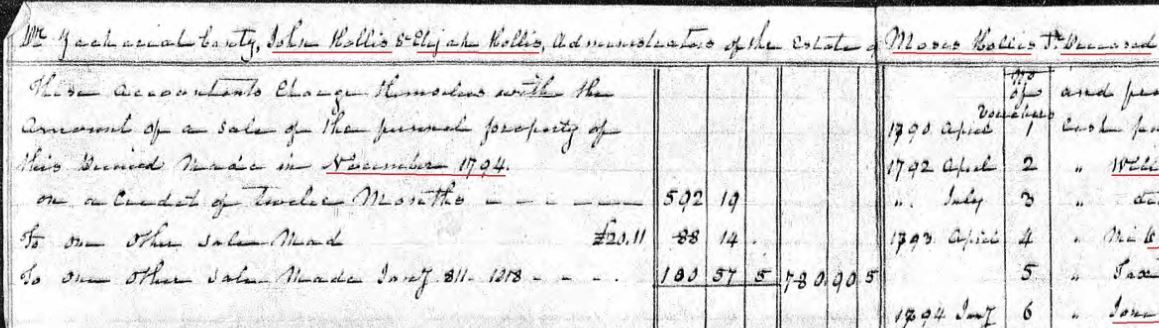 Mr Zachariah Canty, John Hollis & Elijah Hollis, Administrators of the Estate of Moses Hollis Jr. Deceased
These accountants Charge themselves with the
amount of a sale of the personal property of
this Deceased made in November 1794.
on a Credit of twelve Months - - - - - 592 19
To one other sale Mad £20.11 88 14
To one other sale Made Jany 8th 1818 - - - . 100 57 5 780.90 5
No of Vouchers and
1790 April 1 Cash
1792 April 2 "
" July 3 "
1793 April 4 "
5 "
1794 Jany 6 "